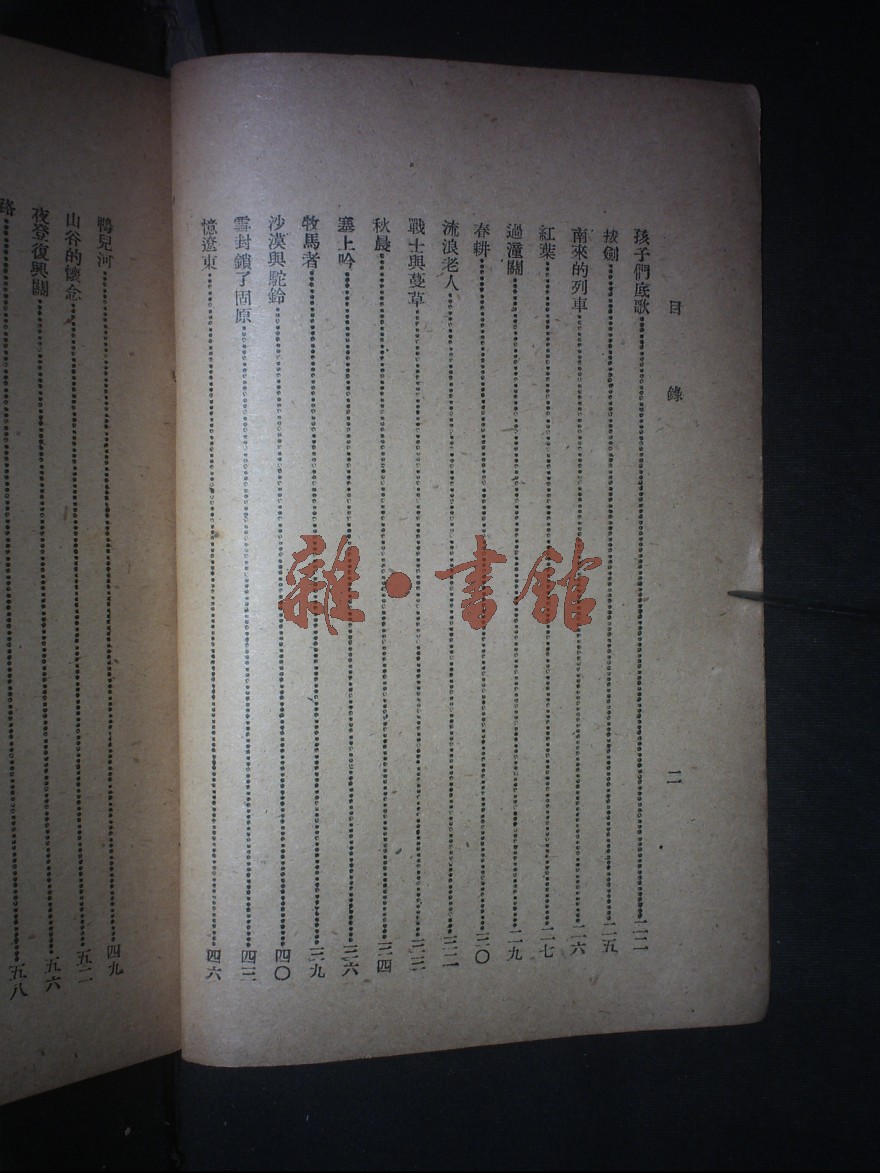 目錄
二
孩子們底歌 二二
拔劍 二五
南來的列車 二六
紅葉 二七
過潼關 二九
春耕 三〇
流浪老人 三二
戰士與蔓草 三三
秋晨 三四
塞上吟 三六
牧馬者 三九
沙漠與駝鈴 四〇
雪封鎖了固原 四三
憶遼東 四六
鴨兒河 四九
山谷的懷念 五二
夜登復興關 五六
路 五八
雜·書館